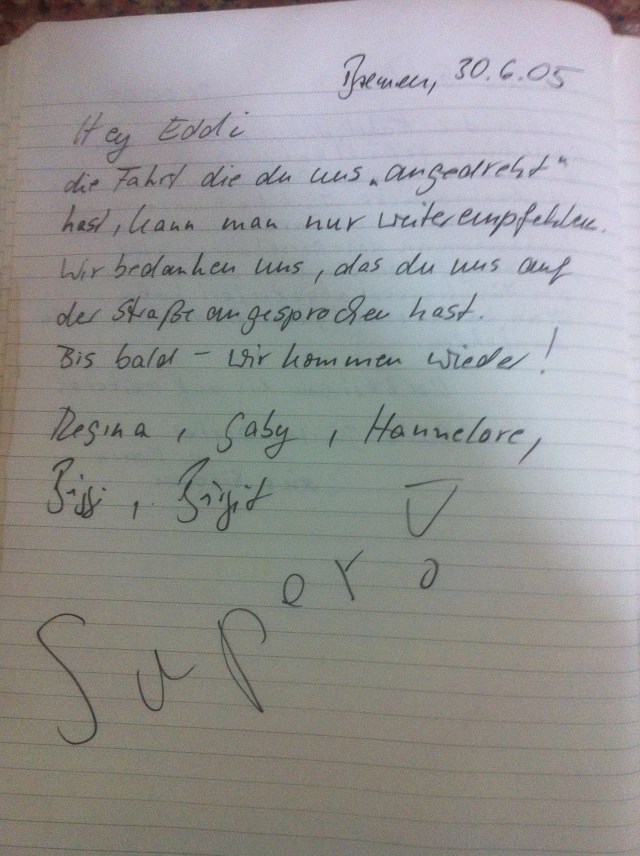 Bremen, 30.6.05
Hey Eddi
die Fahrt die du uns „angedreht“
hast, kann man nur weiterempfehlen.
Wir bedanken uns, das du uns auf
der Straße angesprochen hast.
Bis bald – wir kommen wieder!
Regina, Gaby, Hannelore,
Birgit
Super!